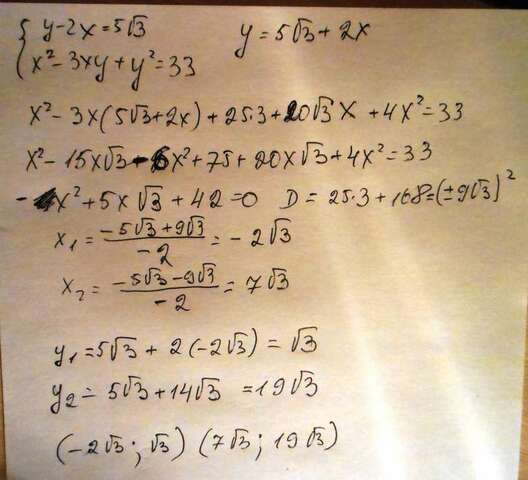 { y-2x=5√3    y=5√3+2x
{ x²-3xy+y²=33
x²-3x(5√3+2x)+25·3+20√3x+4x²=33
x²-15x√3-6x²+75+20x√3+4x²=33
-x²+5x√3+42=0    D=25·3+168=(±9√3)²
x₁=(-5√3+9√3)/-2=-2√3
x₂=(-5√3-9√3)/-2=7√3
y₁=5√3+2(-2√3)=√3
y₂=5√3+14√3=19√3
(-2√3; √3) (7√3; 19√3)